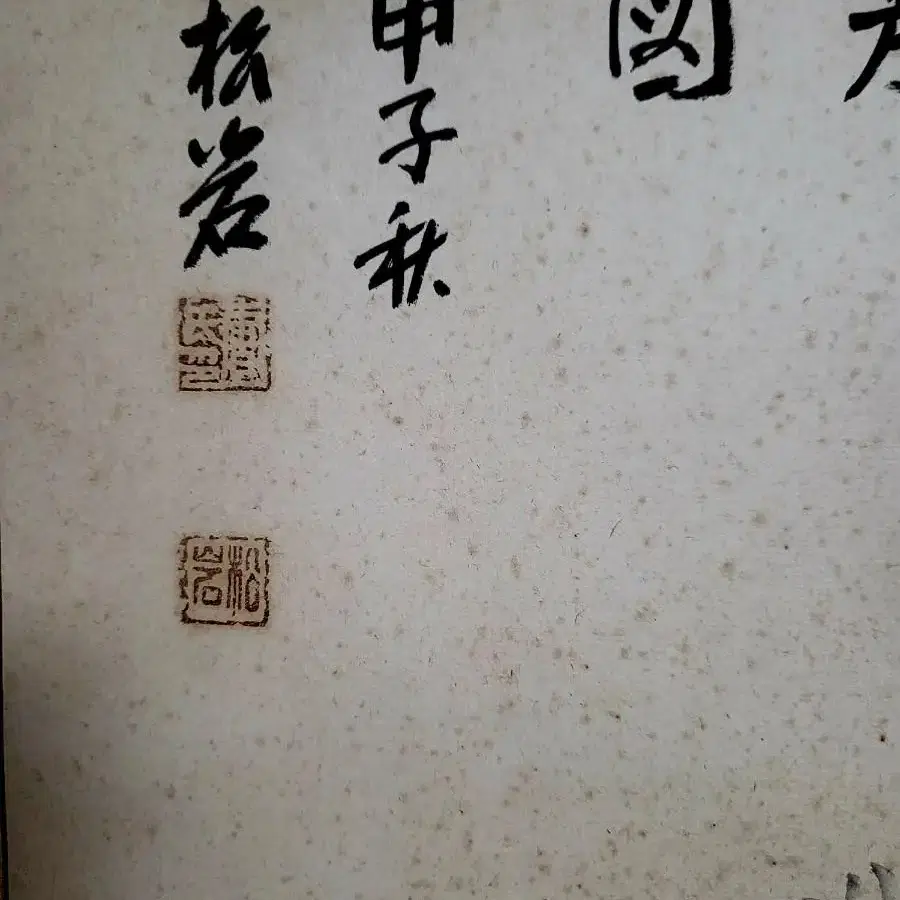 図
甲子秋
松岩
松岩